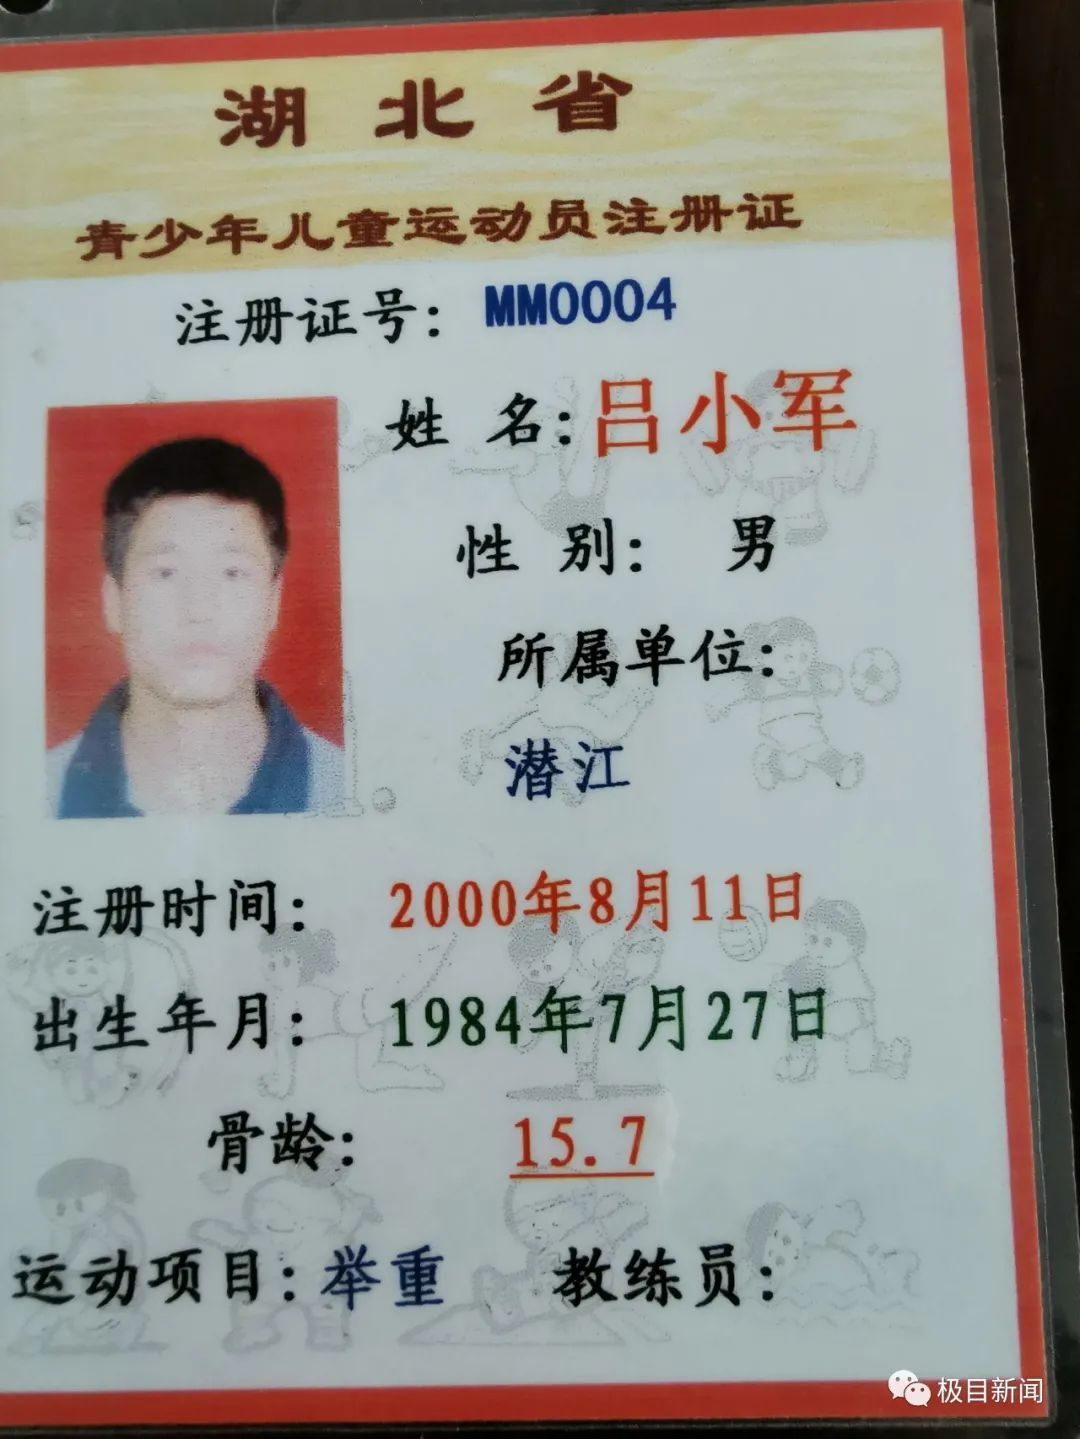 湖北省
青少年儿童运动员注册证
注册证号：MM0004
姓 名：吕小军
性 别： 男
所属单位：
潜江
注册时间： 2000年8月11日
出生年月： 1984年7月27日
骨龄： 15.7
运动项目：举重 教练员：
极目新闻